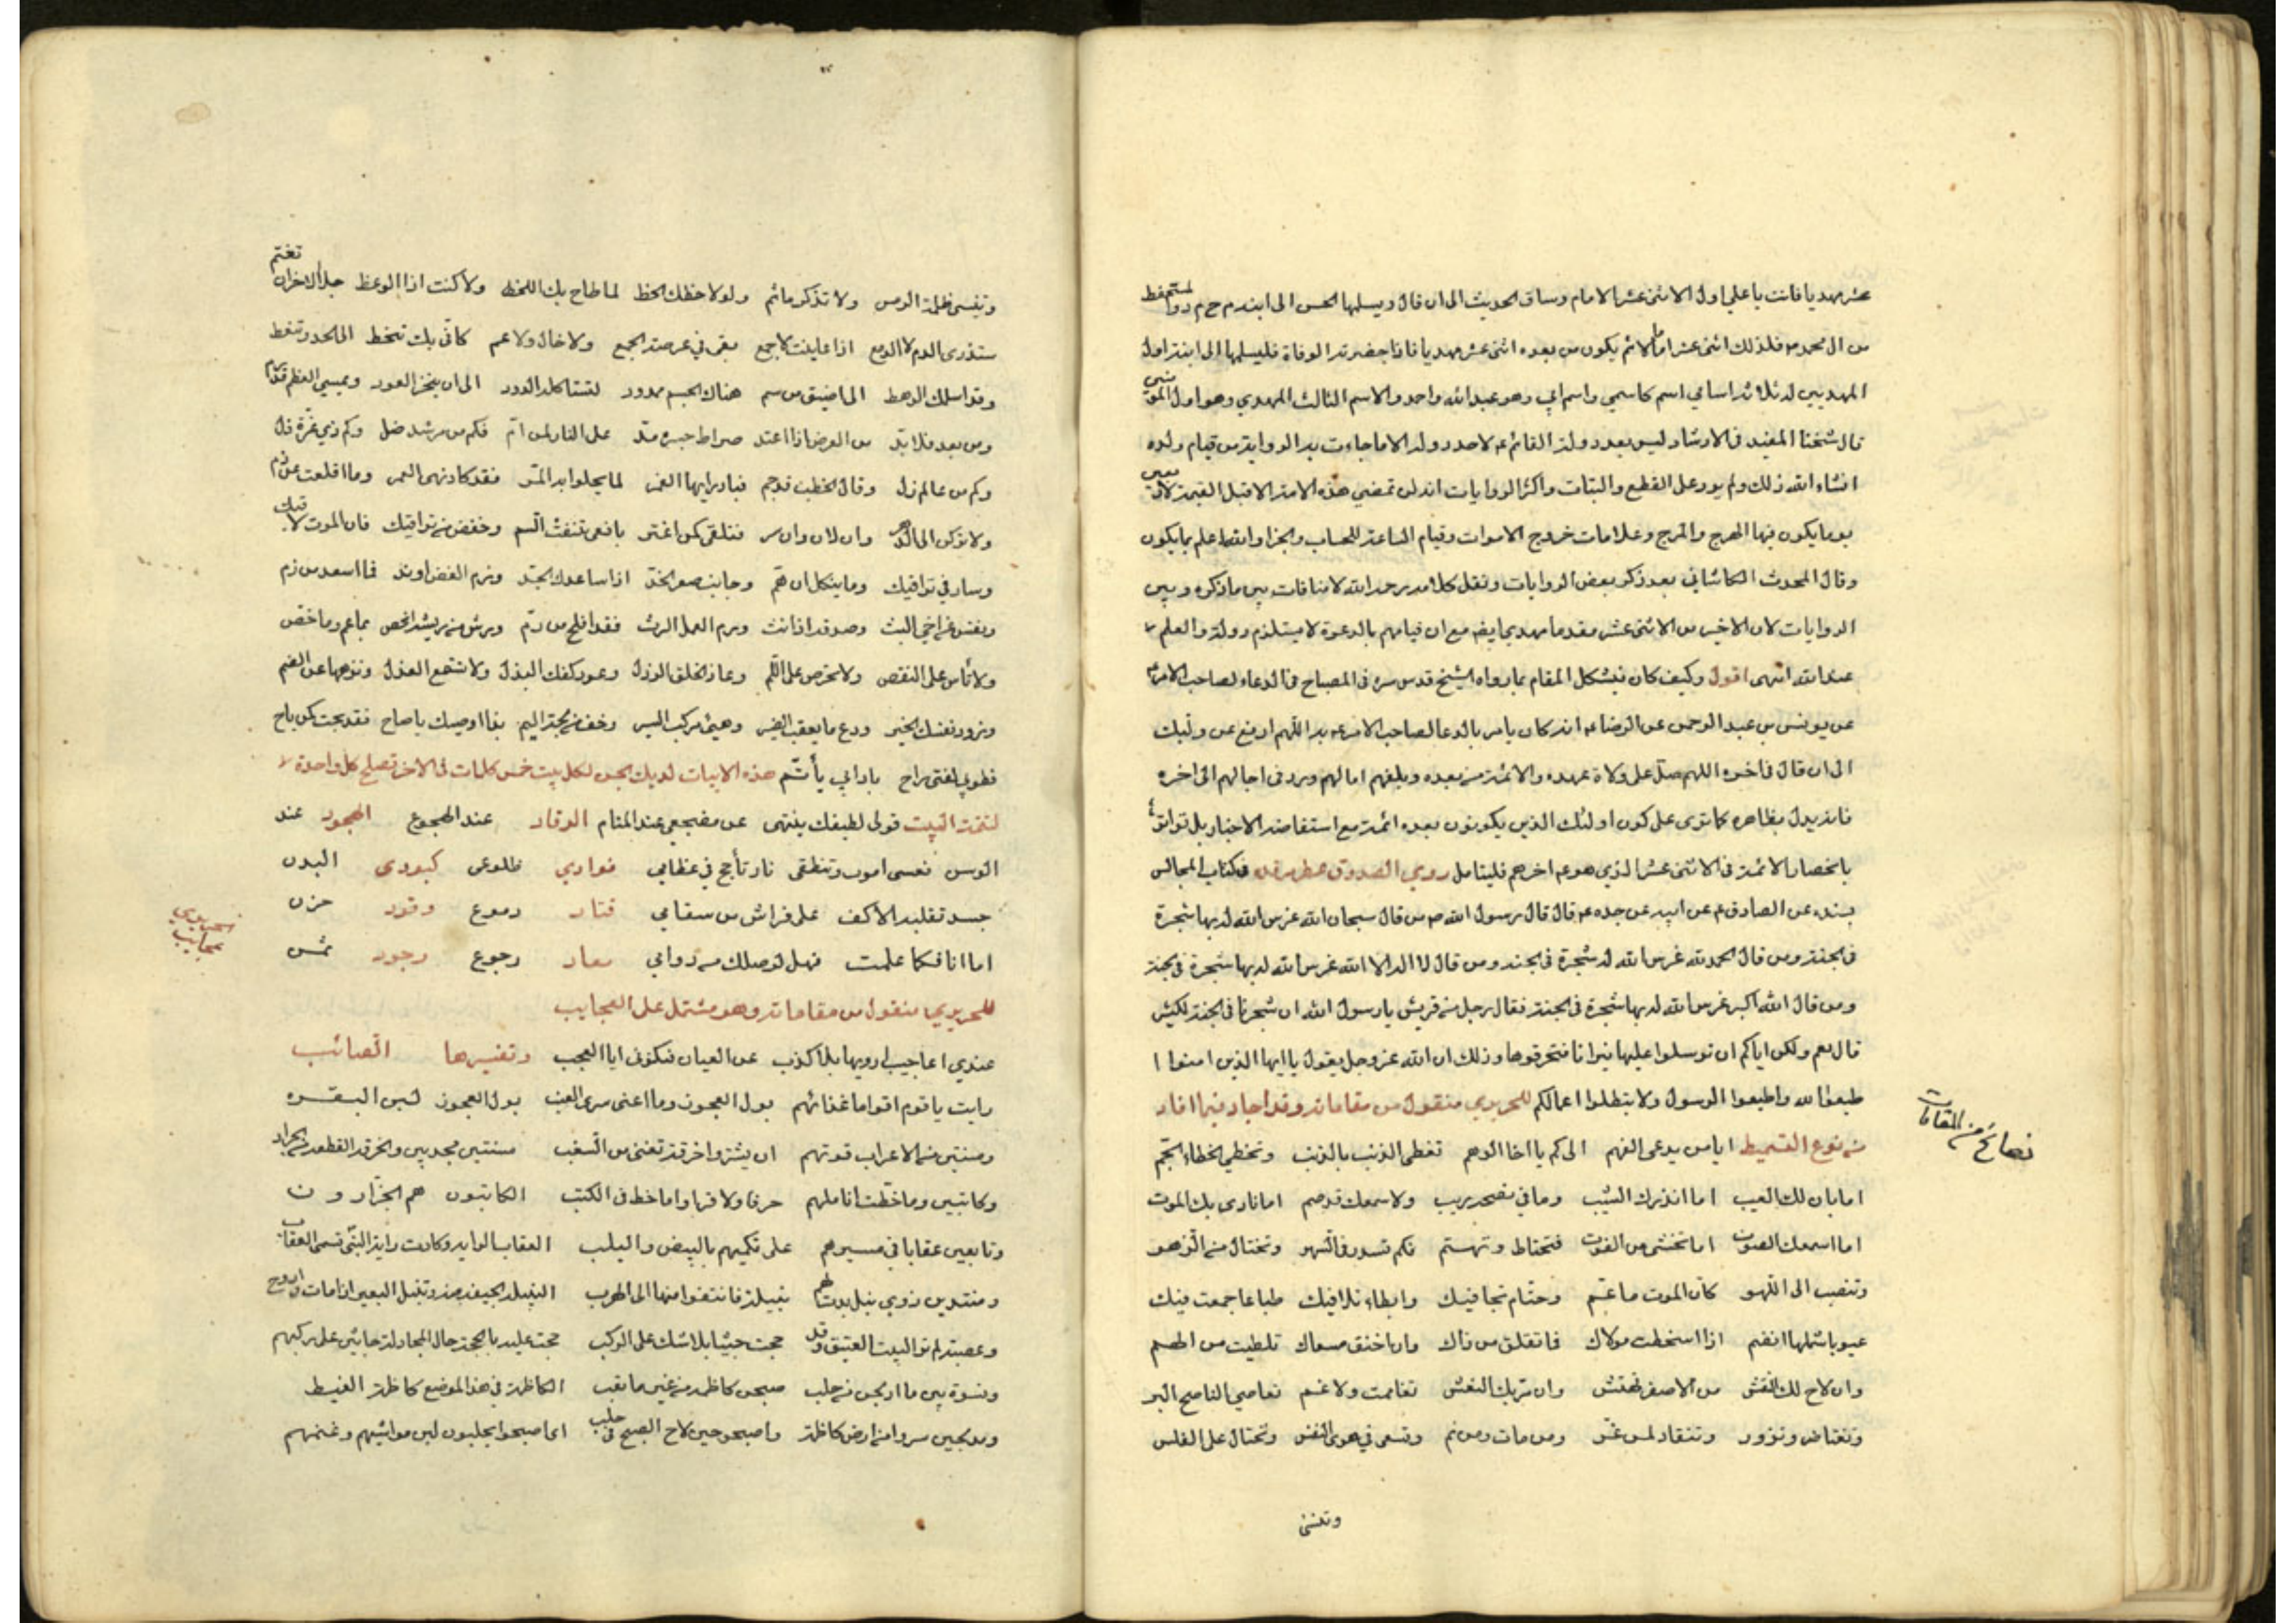 عشر مهديا فانت يا علي اول الاثنى عشر الامام وساق الحديث الى ان قال ويسلمها الحسن الى ابنه م ح م د المستحفظ
من ال محمد ص فذلك اثنى عشر اماما ثم يكون من بعده اثنى عشر مهديا فاذا حضرته الوفاة فليسلمها الى ابنه اول
المهديين له ثلاثة اسامي اسم كاسمي واسم ابي وهو عبد الله واحد والاسم الثالث المهدي وهو اول المؤمنين
قال شيخنا المفيد في الارشاد ليس بعد دولة القائم ع لاحد دولة الا ما جاءت به الرواية من قيام ولده
انشاء الله ذلك ولم يرد على القطع والثبات واكثر الروايات انه لن تمضي هذه الامة الا قبل القيمة باربعين
يوما يكون فيها الهرج والمرج وعلامات خروج الاموات وقيام الساعة للحساب والجزا والله اعلم بما يكون
وقال المحدث الكاشاني بعد ذكر بعض الروايات ونقل كلامه رحمه الله لا منافات بين ما ذكره وبين
الروايات لان الاخير من الاثنى عشر مقدما مهدي ايضا مع ان قيامهم بالدعوة لا يستلزم دولة والعلم
عند الله انتهى اقول وكيف كان فيشكل المقام بما رواه الشيخ قدس سره في المصباح في الدعاء لصاحب الامر ع
عن يونس بن عبد الرحمن عن الرضا ع انه كان يامر بالدعا لصاحب الامر ع بهذا اللهم ادفع عن وليك
الى ان قال في اخره اللهم صل على ولاة عهده والائمة من بعده وبلغهم امالهم وزد في اجالهم الى اخره
فانه يدل بظاهره كما ترى على كون اولئك الذين يكونون بعده ائمة مع استفاضة الاخبار بل تواترها
بانحصار الائمة في الاثنى عشر الذي هو ع اخرهم فليتامل روى الصدوق عطر مرقده في كتاب المجالس
بسنده عن الصادق ع عن ابيه عن جده ع قال قال رسول الله ص من قال سبحان الله غرس الله له بها شجرة
في الجنة ومن قال الحمد لله غرس الله له شجرة في الجنة ومن قال لا اله الا الله غرس الله له بها شجرة في الجنة
ومن قال الله اكبر غرس الله له بها شجرة في الجنة فقال رجل من قريش يا رسول الله ان شجرنا في الجنة لكثير
قال نعم ولكن اياكم ان ترسلوا عليها نيرانا فتحرقوها وذلك ان الله عز وجل يقول يا ايها الذين امنوا ا
طيعوا لله واطيعوا الرسول ولا تبطلوا اعمالكم للحريري منقول من مقاماته وقد اجاد فيما افاد
من نوع التسميط ايا من يدعى الفهم الى كم يا اخا الوهم تعطى الذنب بالذنب وتخطي الخطاء الجم
اما بان لك العيب اما انذرك الشيب وما في نصحه ريب ولا سمعك قد صم اما نادى بك الموت
اما اسمعك الصوت اما تخشى من الفوت فتحتاط وتهتم فكم تسدر في السهو وتختال من الزهو
وتنصب الى اللهو كان الموت ما عم وحتام تجافيك وابطاء تلافيك طباعا جمعت فيك
عيوبا شملها انضم اذا اسخطت مولاك فما تقلق من ذاك وان اخفق مسعاك تلظيت من الهم
وان لاح لك النقش من الاصفر تهتش وان مر بك النعش تغاممت ولا غم تعاصي الناصح البر
وتعتاض وتزور وتنقاد لمن غر ومن مات ومن نم وتسعى في هوى النفس وتحتال على الفلس
وتنسى
نصائح من المقامات
وتنسى ظلمة الرمس ولا تذكر ما ثم ولو لاحظك الحظ لما طاح بك اللحظ ولا كنت اذا الوعظ جلا الاحزان تغتم
ستذرى الدم لا الدمع اذا عاينت لا جمع يقى في عرصة الجمع ولا خال ولا عم كاني بك تنحط الى اللحد وتنغط
وقد اسلمك الرهط الى اضيق من سم هناك الجسم ممدود لتستاكله الدود الى ان ينخر العود ويمسي العظم قد رم
ومن بعد فلا بد من العرض اذا اعتد صراط جسره مد على النار لمن ام فكم من مرشد ضل وكم ذي عزة ذل
وكم من عالم زل وقال الخطب قد جم فبادر ايها الغمر لما يحلو به المر فقد كاد نهى العمر وما اقلعت عن ذم
ولا تركن الى الدهر وان لان وان سر فتلقى كمن اغتر بافعى تنفث السم وخفض من تراقيك فان الموت لاقيك
وسار في تراقيك وما ينكل ان هم وجانب صعر الخد اذا ساعدك الجد وزم اللفظ ان ند فما اسعد من زم
ونفس عن اخي البث وصدقه اذا نث ورم العمل الرث فقد افلح من رم ورش من ريشه انحص بما عم وما خص
ولا تاس على النقص ولا تحرص على اللم وعاد الخلق الرذل وعود كفك البذل ولا تستمع العذل ونزهها عن الضم
وزود نفسك الخير ودع ما يعقب الضير وهيئ مركب السير وخف من لجة اليم بذا اوصيك يا صاح فقد بحت كمن باح
فطوبى لفتى راح بادابي يأتم هذه الابيات لديك الجن لكل بيت خمس كلمات في الاخر تصلح كل واحدة
لتتمة البيت قولى لطيفك ينثنى عن مضجعى عند المنام الرقاد عند الهجوع الهجود عند
الوسن فعسى اموت وتنطفى نار تأجج في عظامي فوادي ضلوعى كبودى البدن
جسد تقلبه الاكف على فراش من سقامي قتاد دموع وقود حزن
اما انا فكما علمت فهل لوصلك من دوامي معاد رجوع وجود ثمن
للحريري منقول من مقاماته وهو مشتمل على العجايب
عندي اعاجيب ارويها بلا كذب عن العيان فكنونى ابا العجب وتفسيرها الصائب
رايت يا قوم اقواما غذائهم بول العجوز وما اعنى سوى العنب بول العجوز لبن البقره
ومسنتين من الاعراب قوتهم ان يشتووا خرقة تغنى من السغب مسنتين مجدبين والخرقة القطعة من الجراد
وكاتبين وما خطت اناملهم حرفا ولا قراوا ما خط في الكتب الكاتبون هم الخرازون
وتابعين عقابا في مسيرهم على تكميهم بالبيض واليلب العقاب الراية وكانت راية النبي تسمى العقاب
ومنتدين ذوي نبل بدت لهم نبيلة فانثنوا منها الى الهرب النبيلة الجيفة ومنه تنبل البعير اذا مات واروح
وعصبة لم تر البيت العتيق وقد حجت جثيا بلا شك على الركب حجت غلبت بالحجة حال المجادلة جاثين على ركبهم
ونسوة بين ما ادلجن من حلب صبحن كاظمة من غير ما تعب الكاظمة في هذا الموضع كاظمة الغيظ
ومدلجين سروا من ارض كاظمة واصبحوا حين لاح الصبح في حلب اى اصبحوا يحلبون لبن مواشيهم وغنمهم